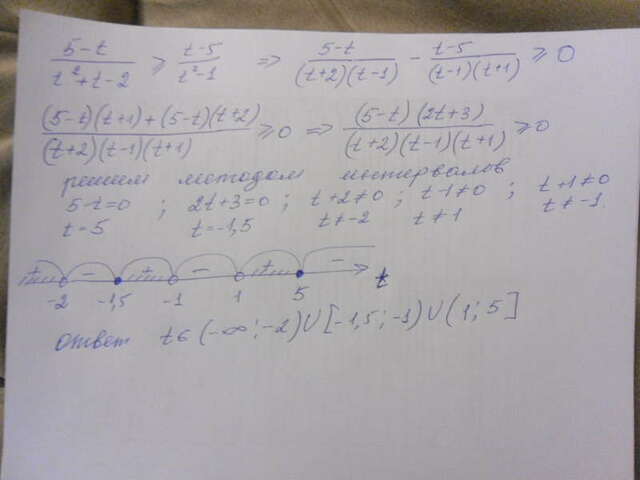 (5-t)/(t²+t-2) ≥ (t-5)/(t²-1) => (5-t)/((t+2)(t-1)) - (t-5)/((t-1)(t+1)) ≥ 0
((5-t)(t+1)+(5-t)(t+2))/((t+2)(t-1)(t+1)) ≥ 0 => ((5-t)(2t+3))/((t+2)(t-1)(t+1)) ≥ 0
решим методом интервалов
5-t=0 ; 2t+3=0 ; t+2≠0 ; t-1≠0 ; t+1≠0
t=5 t=-1,5 t≠-2 t≠1 t≠-1.
+ - + - + -
-2 -1,5 -1 1 5 t
ответ t∈(-∞;-2)∪[-1,5;-1)∪(1;5]